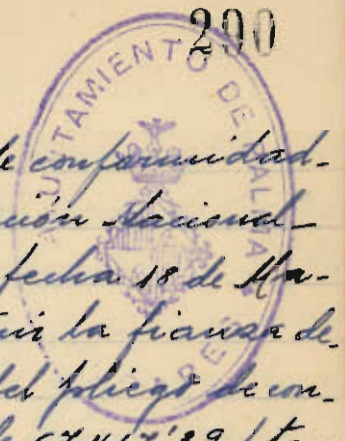 290
AYUNTAMIENTO DE PALMA
de conformidad-
ción Nacional
fecha 18 de Ma-
la fianza de
del pliego de con-